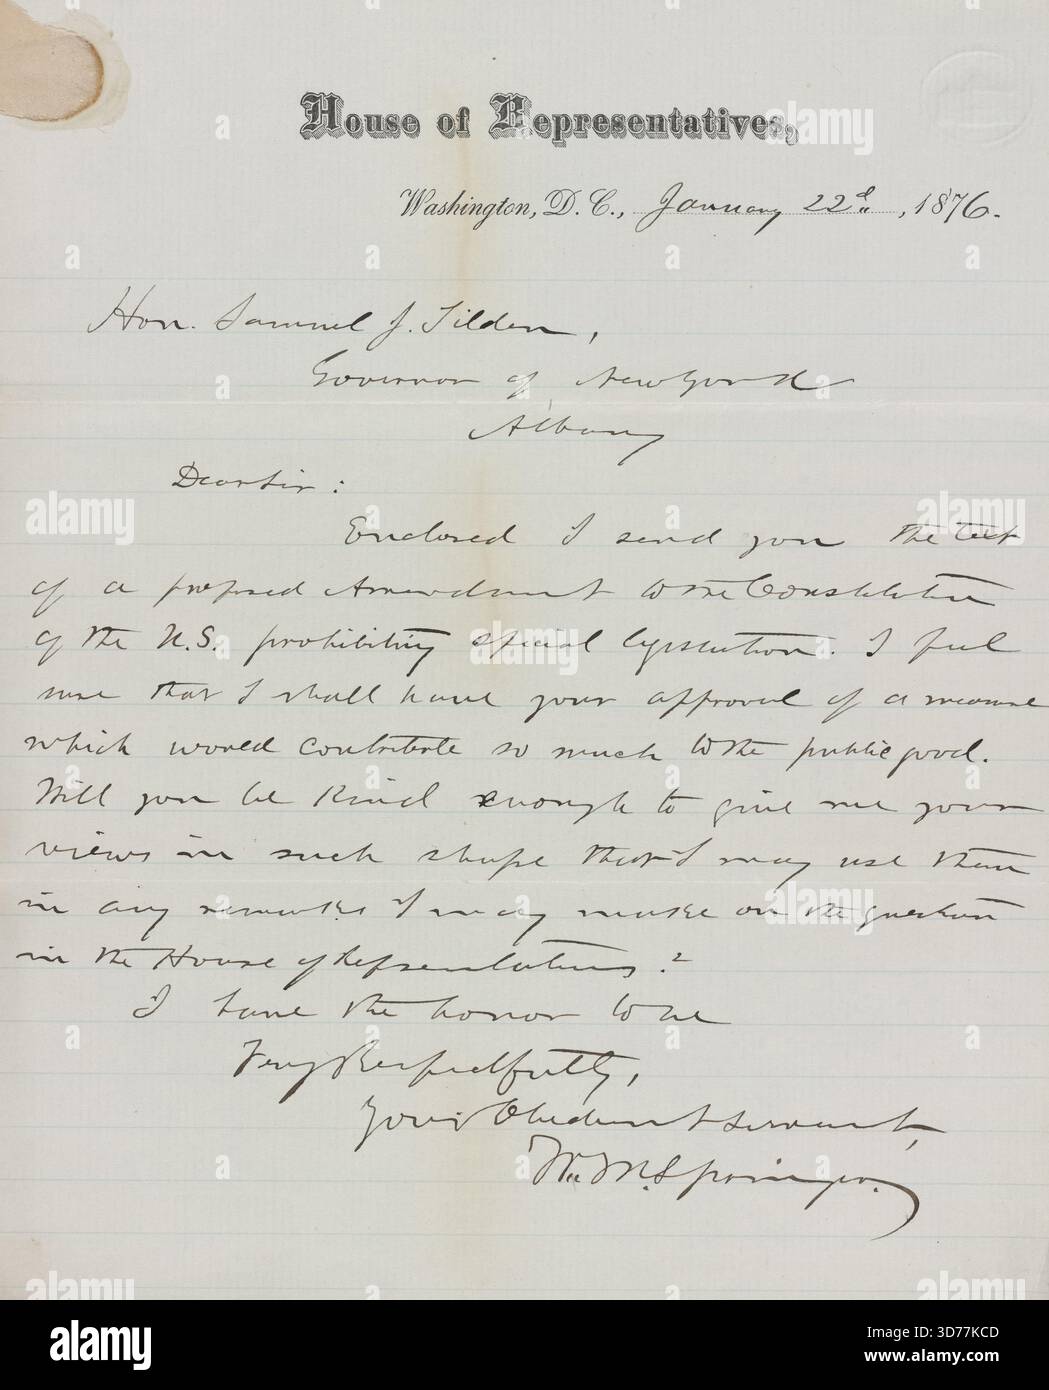 House of Representatives,
Washington, D. C., January 22d, 1876.
Hon. Samuel J. Tilden,
Governor of New York
Albany
Dear Sir:
Enclosed I send you the text
of a proposed Amendment to the Constitution
of the U.S. prohibiting special legislation. I feel
sure that I shall have your approval of a measure
which would contribute so much to the public good.
Will you be kind enough to give me your
views in such shape that I may use them
in any remarks I may make on the question
in the House of Representatives?
I have the honor to be
Very Respectfully,
Your Obedient Servant,
Wm M. Springer.
alamy
Image ID: 3D77KCD
www.alamy.com